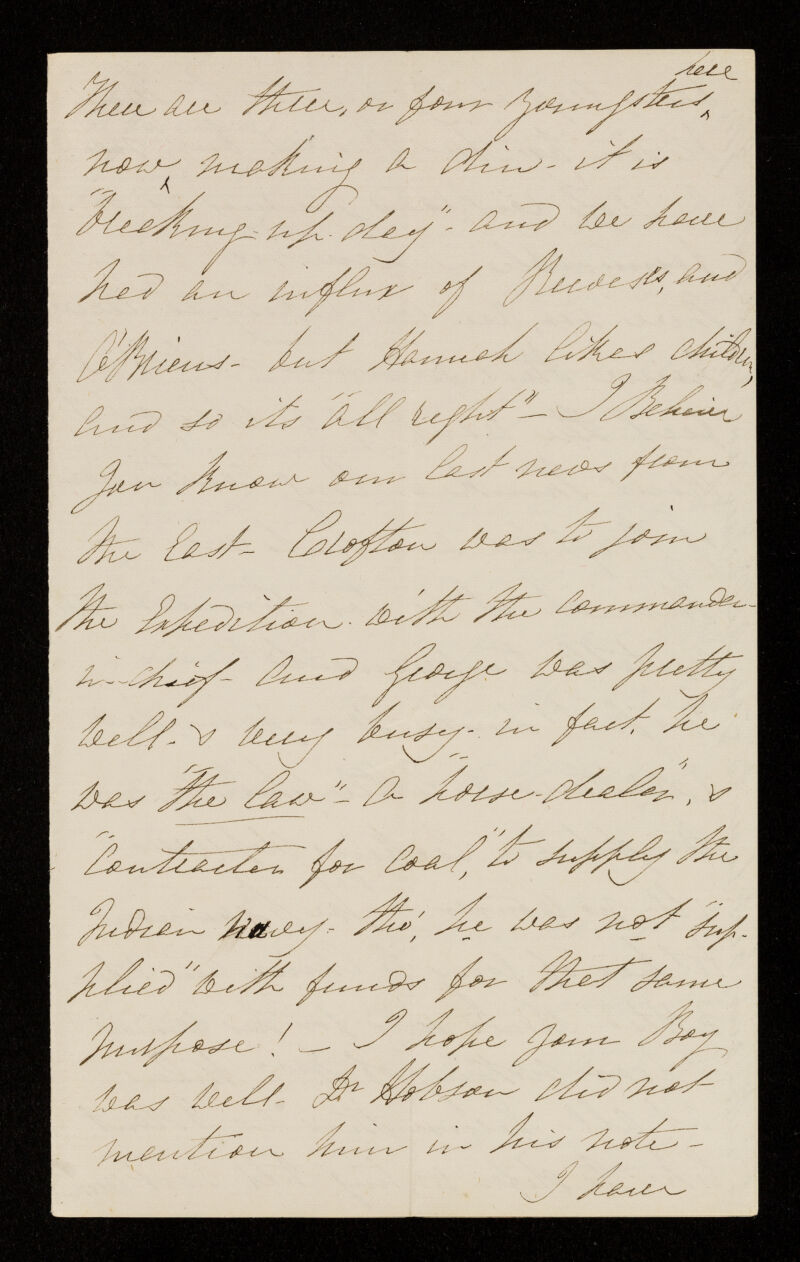 here
There are three, or four youngsters,
now, making a din - it is
"breaking-up-day" - and we have
had an influx of Reeves's, and
O'Briens - but Hannah likes children,
and so its "all right" - I Believe
you know our last news from
the East - Crofton was to join
the Expedition with the commander-
in-chief - and George was pretty
well - & very busy - in fact, he
was "the law" - a "horse-dealer", &
"contractor for coal," to supply the
Indian navy - tho', he was not "sup-
plied" with funds for that same
purpose! - I hope your Boy
was well - Dr Hobson did not
mention him in his note -
I have